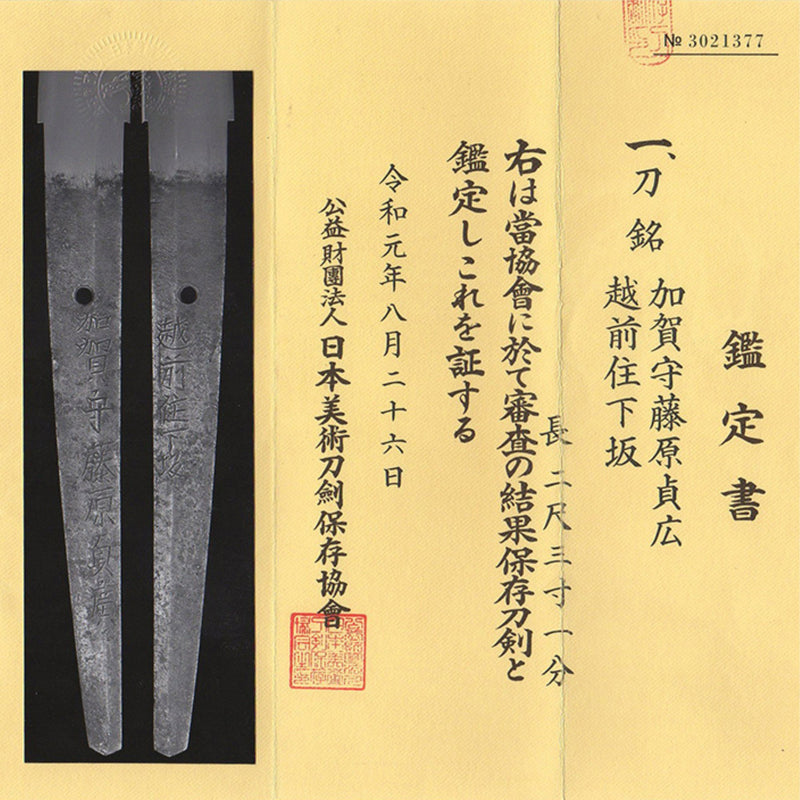 № 3021377
鑑定書
一、刀 銘 加賀守藤原貞広
越前住下坂
長二尺三寸一分
右は當協會に於て審査の結果保存刀剣と
鑑定しこれを証する
令和元年八月二十六日
公益財團法人 日本美術刀劍保存協會
越前住下坂
加賀守藤原貞廣